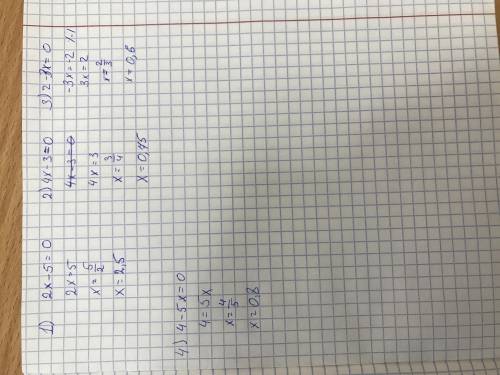 1) 2x-5=0
2x=5
x=5/2
x=2,5
2) 4x-3=0
4x-3=0
4x=3
x=3/4
x=0,75
3) 2-3x=0
-3x=-2 |·1
3x=2
x=2/3
x=0,6
4) 4-5x=0
4=5x
x=4/5
x=0,8